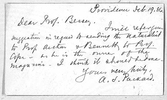 Providence Feb. 19,
Dear Prof. Bessey,
I make
suggestion in regard to sending the Naturalist
to Prof. and Bennett, to Prof.
Cope - as he is the owner of the
magazine - I think it should be done.
Yours very truly,
A. S. Packard